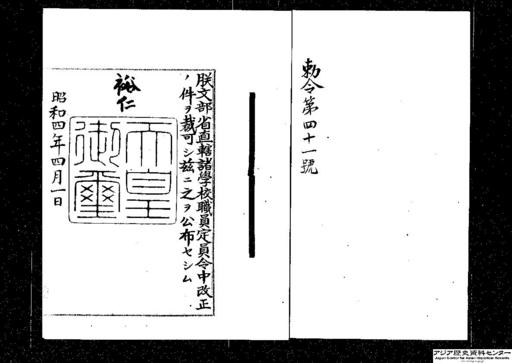 勅令第四十一號
朕文部省直轄諸學校職員定員令中改正
ノ件ヲ裁可シ玆ニ之ヲ公布セシム
裕仁
天皇
御璽
昭和四年四月一日
アジア歴史資料センター
Japan Center for Asian Historical Records